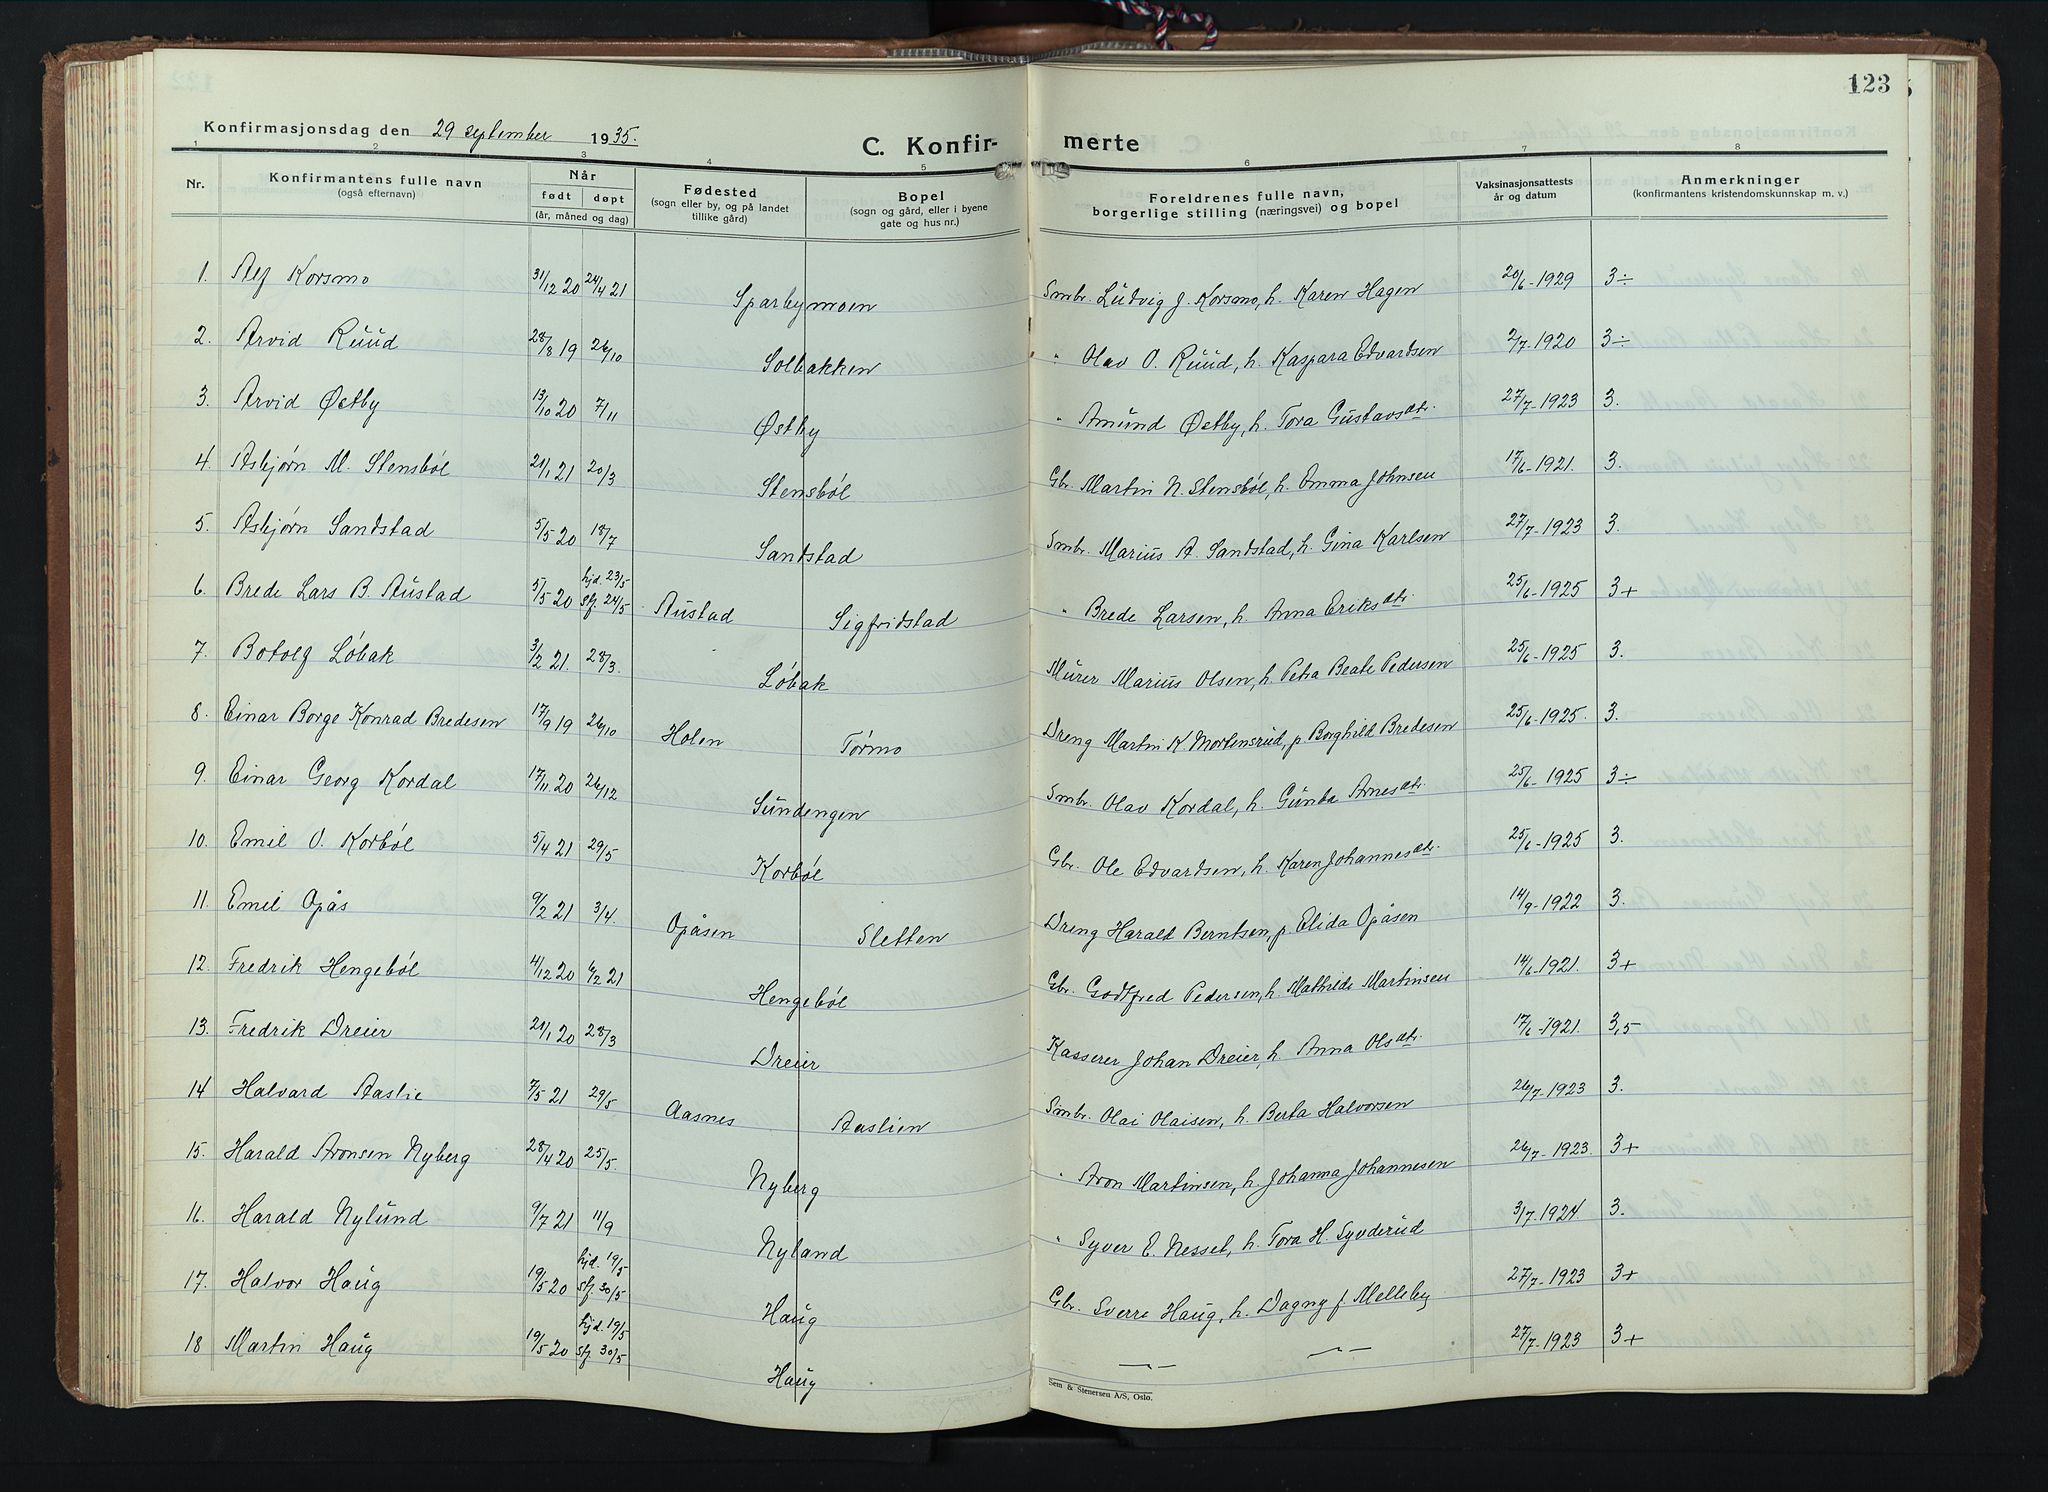 123
Konfirmasjonsdag den 29 september 1935.
C. Konfir- merte
1 2 3 4 5 6 7 8
Nr. Konfirmantens fulle navn (også efternavn) Når født døpt (år, måned og dag) Fødested (sogn eller by, og på landet tillike gård) Bopel (sogn og gård, eller i byene gate og hus nr.) Foreldrenes fulle navn, borgerlige stilling (næringsvei) og bopel Vaksinasjonsattests år og datum Anmerkninger (konfirmantens kristendomskunnskap m. v.)
1. Alf Korsmo 31/12 20 24/4 21 Sparbymoen Smbr. Ludvig J. Korsmo, h. Karen Hagen 20/6-1929 3÷
2. Arvid Ruud 28/8 19 26/10 Solbakken " Olav O. Ruud, h. Kaspara Edvardsen 2/7-1920 3÷
3. Arvid Østby 13/10 20 7/11 Østby " Amund Østby, h. Tora Gustavsdtr. 27/7-1923 3.
4. Asbjørn M. Stensbøl 21/1 21 20/3 Stensbøl Gbr. Martin N. Stensbøl, h. Emma Johnsen 17/6-1921. 3.
5. Asbjørn Sandstad 5/5 20 18/7 Sandstad Smbr. Marius A. Sandstad, h. Gina Karlsen 27/7-1923 3.
6. Brede Lars B. Austad 5/5 20 hjd. 23/5 stf. 24/5 Austad Sigfridstad " Brede Larsen, h. Anna Eriksdtr. 25/6-1925 3+
7. Botolf Løbak 3/2 21. 28/3. Løbak Murer Marius Olsen, h. Petra Beate Pedersen 25/6-1925 3.
8. Einar Borge Konrad Bredesen 17/9 19 26/10 Holen Tørmo Dreng Martin K Mortensrud, p. Borghild Bredesen 25/6-1925. 3.
9. Einar Georg Kordal 17/11 20 26/12 Sundengen Smbr. Olav Kordal, h. Gunda Arnesdtr. 25/6-1925 3÷
10. Emil O. Korbøl 5/4 21 29/5 Korbøl Gbr. Ole Edvardsen, h. Karen Johannesdtr. 25/6-1925 3.
11. Emil Opås 9/2 21 3/4 Opåsen Sletten Dreng Harald Berntsen, p. Elida Opåsen 14/9-1922 3.
12. Fredrik Hengebøl 4/12 20 6/2 21 Hengebøl Gbr. Godtfred Pedersen, h. Mathilde Martinsen 14/6-1921. 3+
13. Fredrik Dreier 21/1 20 28/3 Dreier Kasserer Johan Dreier, h. Anna Olsdtr. 17/6-1921. 3,5
14 Halvard Aaslie 7/5 21 29/5 Aasnes Aaslien Smbr. Olai Olaisen, h. Berta Halvorsen 26/7-1923 3.
15. Harald Aronsen Nyberg 28/4 20 25/5. Nyberg " Aron Martinsen, h. Johanna Johannesen 26/7-1923. 3+
16. Harald Nylund 9/7 21 11/9 Nyland " Syver E. Nesset, h. Tora H. Syverud 3/7-1924. 3.
17. Halvor Haug 19/5 20 hjd. 19/5 stf. 30/5 Haug Gbr. Sverre Haug, h. Dagny J. Melleby 27/7-1923 3+
18 Martin Haug 19/5 20 hjd. 19/5 stf. 30/5 Haug —"— —"— 27/7-1923 3+
Sem & Stenersen A/S, Oslo.